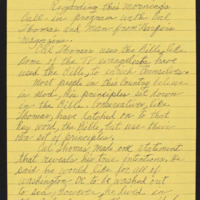 Regarding this mornings
Call in program with Cal
Thomas and man from Harpers
magazine.
Cal Thomas uses the Bible, like
some of the TV evangelists have
used the Bible, to enrich themselves.
Most people in this country believe
in God, the principles set down
in the Bible. Conservatives, like
Thomas, have latched on to that
key word, the Bible, but use their
own set of principles.
Cal Thomas made one statement
that reveals his true intentions. He
said he would like for all of
Washington DC to be washed out
to sea. However, he lived in